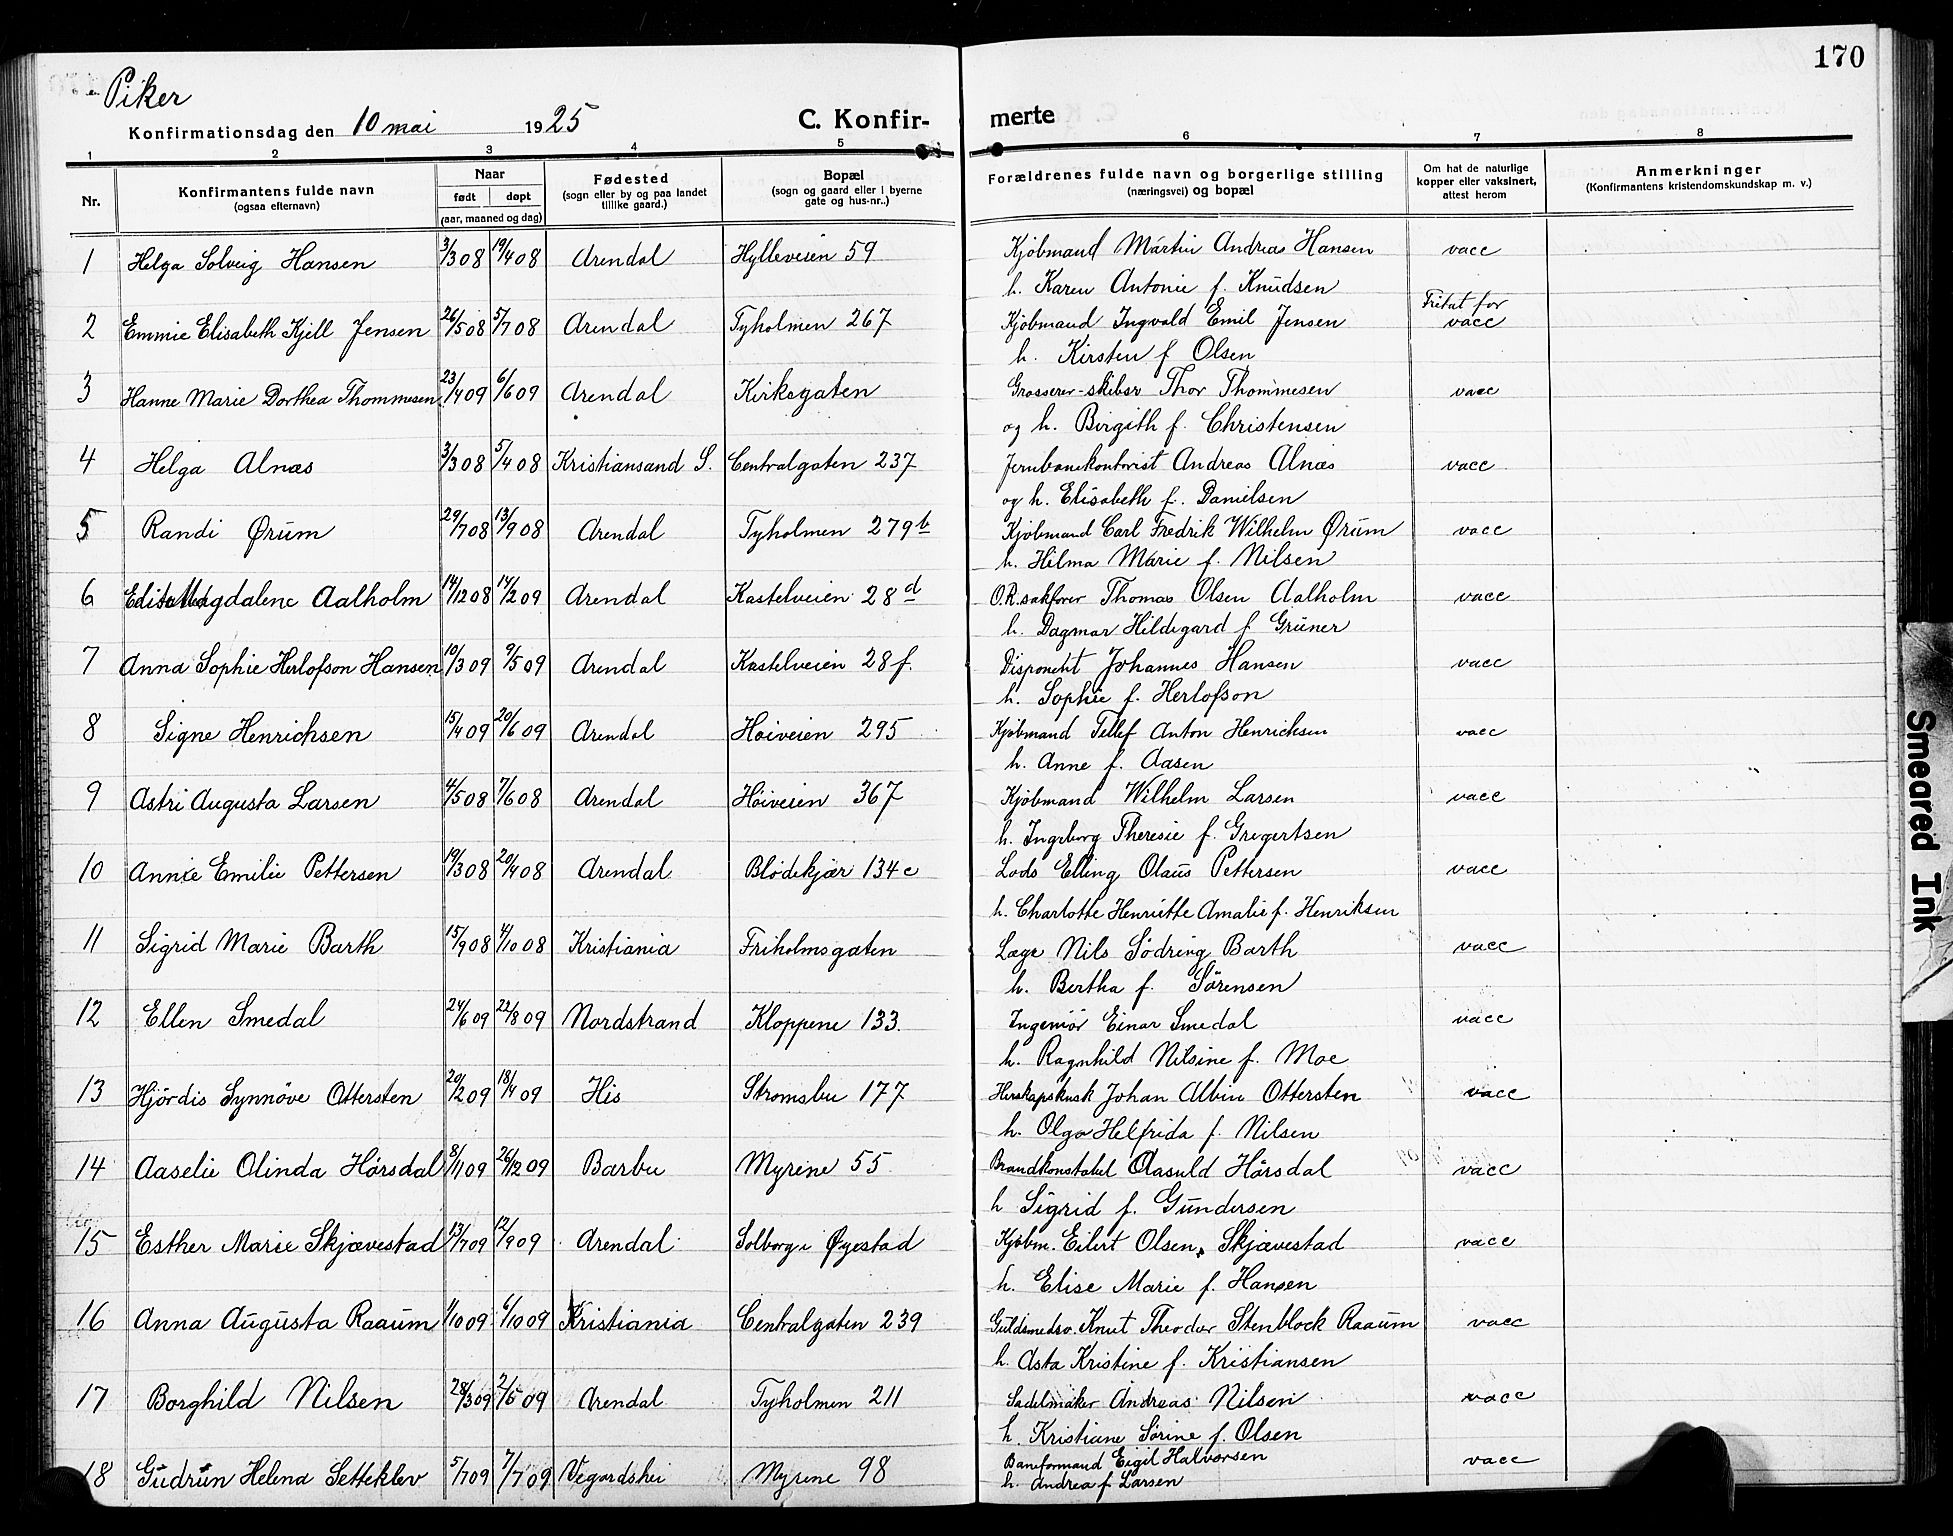 170
Piker
Konfirmationsdag den 10 mai 1925
C. Konfir-
merte
1 2 3 4 5 6 7 8
Nr.
Konfirmantens fulde navn
(ogsaa efternavn)
Naar
født døpt
(aar, maaned og dag)
Fødested
(sogn eller by og paa landet
tillike gaard.)
Bopæl
(sogn og gaard eller i byerne
gate og hus-nr..)
Forældrenes fulde navn og borgerlige stilling
(næringsvei) og bopæl
Om hat de naturlige
kopper eller vaksinert,
attest herom
Anmerkninger
(Konfirmantens kristendomskundskap m. v.)
1 Helga Solveig Hansen 3/3 08 19/4 08 Arendal Hylleveien 59 Kjøbmand Martin Andreas Hansen vacc
h. Karen Antonie f. Knudsen
Fritat for
2 Emmie Elisabeth Kjell Jensen 26/5 08 5/7 08 Arendal Tyholmen 267 Kjøbmand Ingvald Emil Jensen vacc
h. Kirsten f Olsen
3 Hanne Marie Dorthea Thommesen 23/4 09 6/6 09 Arendal Kirkegaten Grosserer-skibsr Thor Thommesen vacc
og h. Birgith f. Christensen
4 Helga Alnæs 3/3 08 5/4 08 Kristiansand S. Centralgaten 237 Jernbanekontorist Andreas Alnæs vacc
og h. Elisabeth f. Danielsen
5 Randi Ørum 29/7 08 13/9 08 Arendal Tyholmen 279b Kjøbmand Carl Fredrik Wilhelm Ørum vacc
h. Hilma Marie f. Nilsen
6 Edith Magdalene Aalholm 14/12 08 14/2 09 Arendal Kastelveien 28d O.R.sakfører Thomas Olsen Aalholm vacc
h. Dagmar Hildegard f Grüner
7 Anna Sophie Herlofson Hansen 10/3 09 9/5 09 Arendal Kastelveien 28f. Disponent Johannes Hansen vacc
h. Sophie f. Herlofson
8 Signe Henrichsen 15/4 09 20/6 09 Arendal Høiveien 295 Kjøbmand Tellef Anton Henrichsen vacc
h. Anne f. Aasen
9 Astri Augusta Larsen 4/5 08 7/6 08 Arendal Høiveien 367 Kjøbmand Wilhelm Larsen vacc
h. Ingeborg Theresie f. Gregertsen
10 Annie Emilie Pettersen 19/3 08 20/4 08 Arendal Blødekjær 134c Lods Elling Olaus Pettersen vacc
h. Charlotte Henriette Amalie f. Henriksen
11 Sigrid Marie Barth 15/9 08 4/10 08 Kristiania Friholmsgaten Læge Nils Södring Barth vacc
h. Bertha f. Sørensen
12 Ellen Smedal 24/6 09 22/8 09 Nordstrand Kloppene 133. Ingeniør Einar Smedal vacc
h. Ragnhild Nilsine f. Moe
13 Hjördis Synnöve Ottersten 20/2 09 18/4 09 His Strømsbu 177 Herskapskusk Johan Albin Ottersten vacc
h. Olga Helfrida f. Nilsen
14 Aaselie Olinda Hørsdal 8/11 09 26/12 09 Barbu Myrene 55 Brandkonstabel Aasuld Hørsdal vacc
h Sigrid f. Gundersen
15 Esther Marie Skjævestad 13/7 09 12/9 09 Arendal Solborg i Øyestad Kjøbm. Eilert Olsen Skjævestad vacc
h. Elise Marie f. Hansen
16 Anna Augusta Raaum 1/10 09 6/10 09 Kristiania Centralgaten 239 Guldsmedsv. Knut Theodor Stenblock Raaum vacc
h. Asta Kristine f. Kristiansen
17 Borghild Nilsen 28/3 09 2/5 09 Arendal Tyholmen 211 Sadelmaker Andreas Nilsen vacc
h. Kristiane Sørine f. Olsen
18 Gudrun Helena Setteklev 5/7 09 7/7 09 Vegardshei Myrene 98 Baneformand Eigil Halvorsen vacc
h. Andrea f Larsen
Smeared Ink